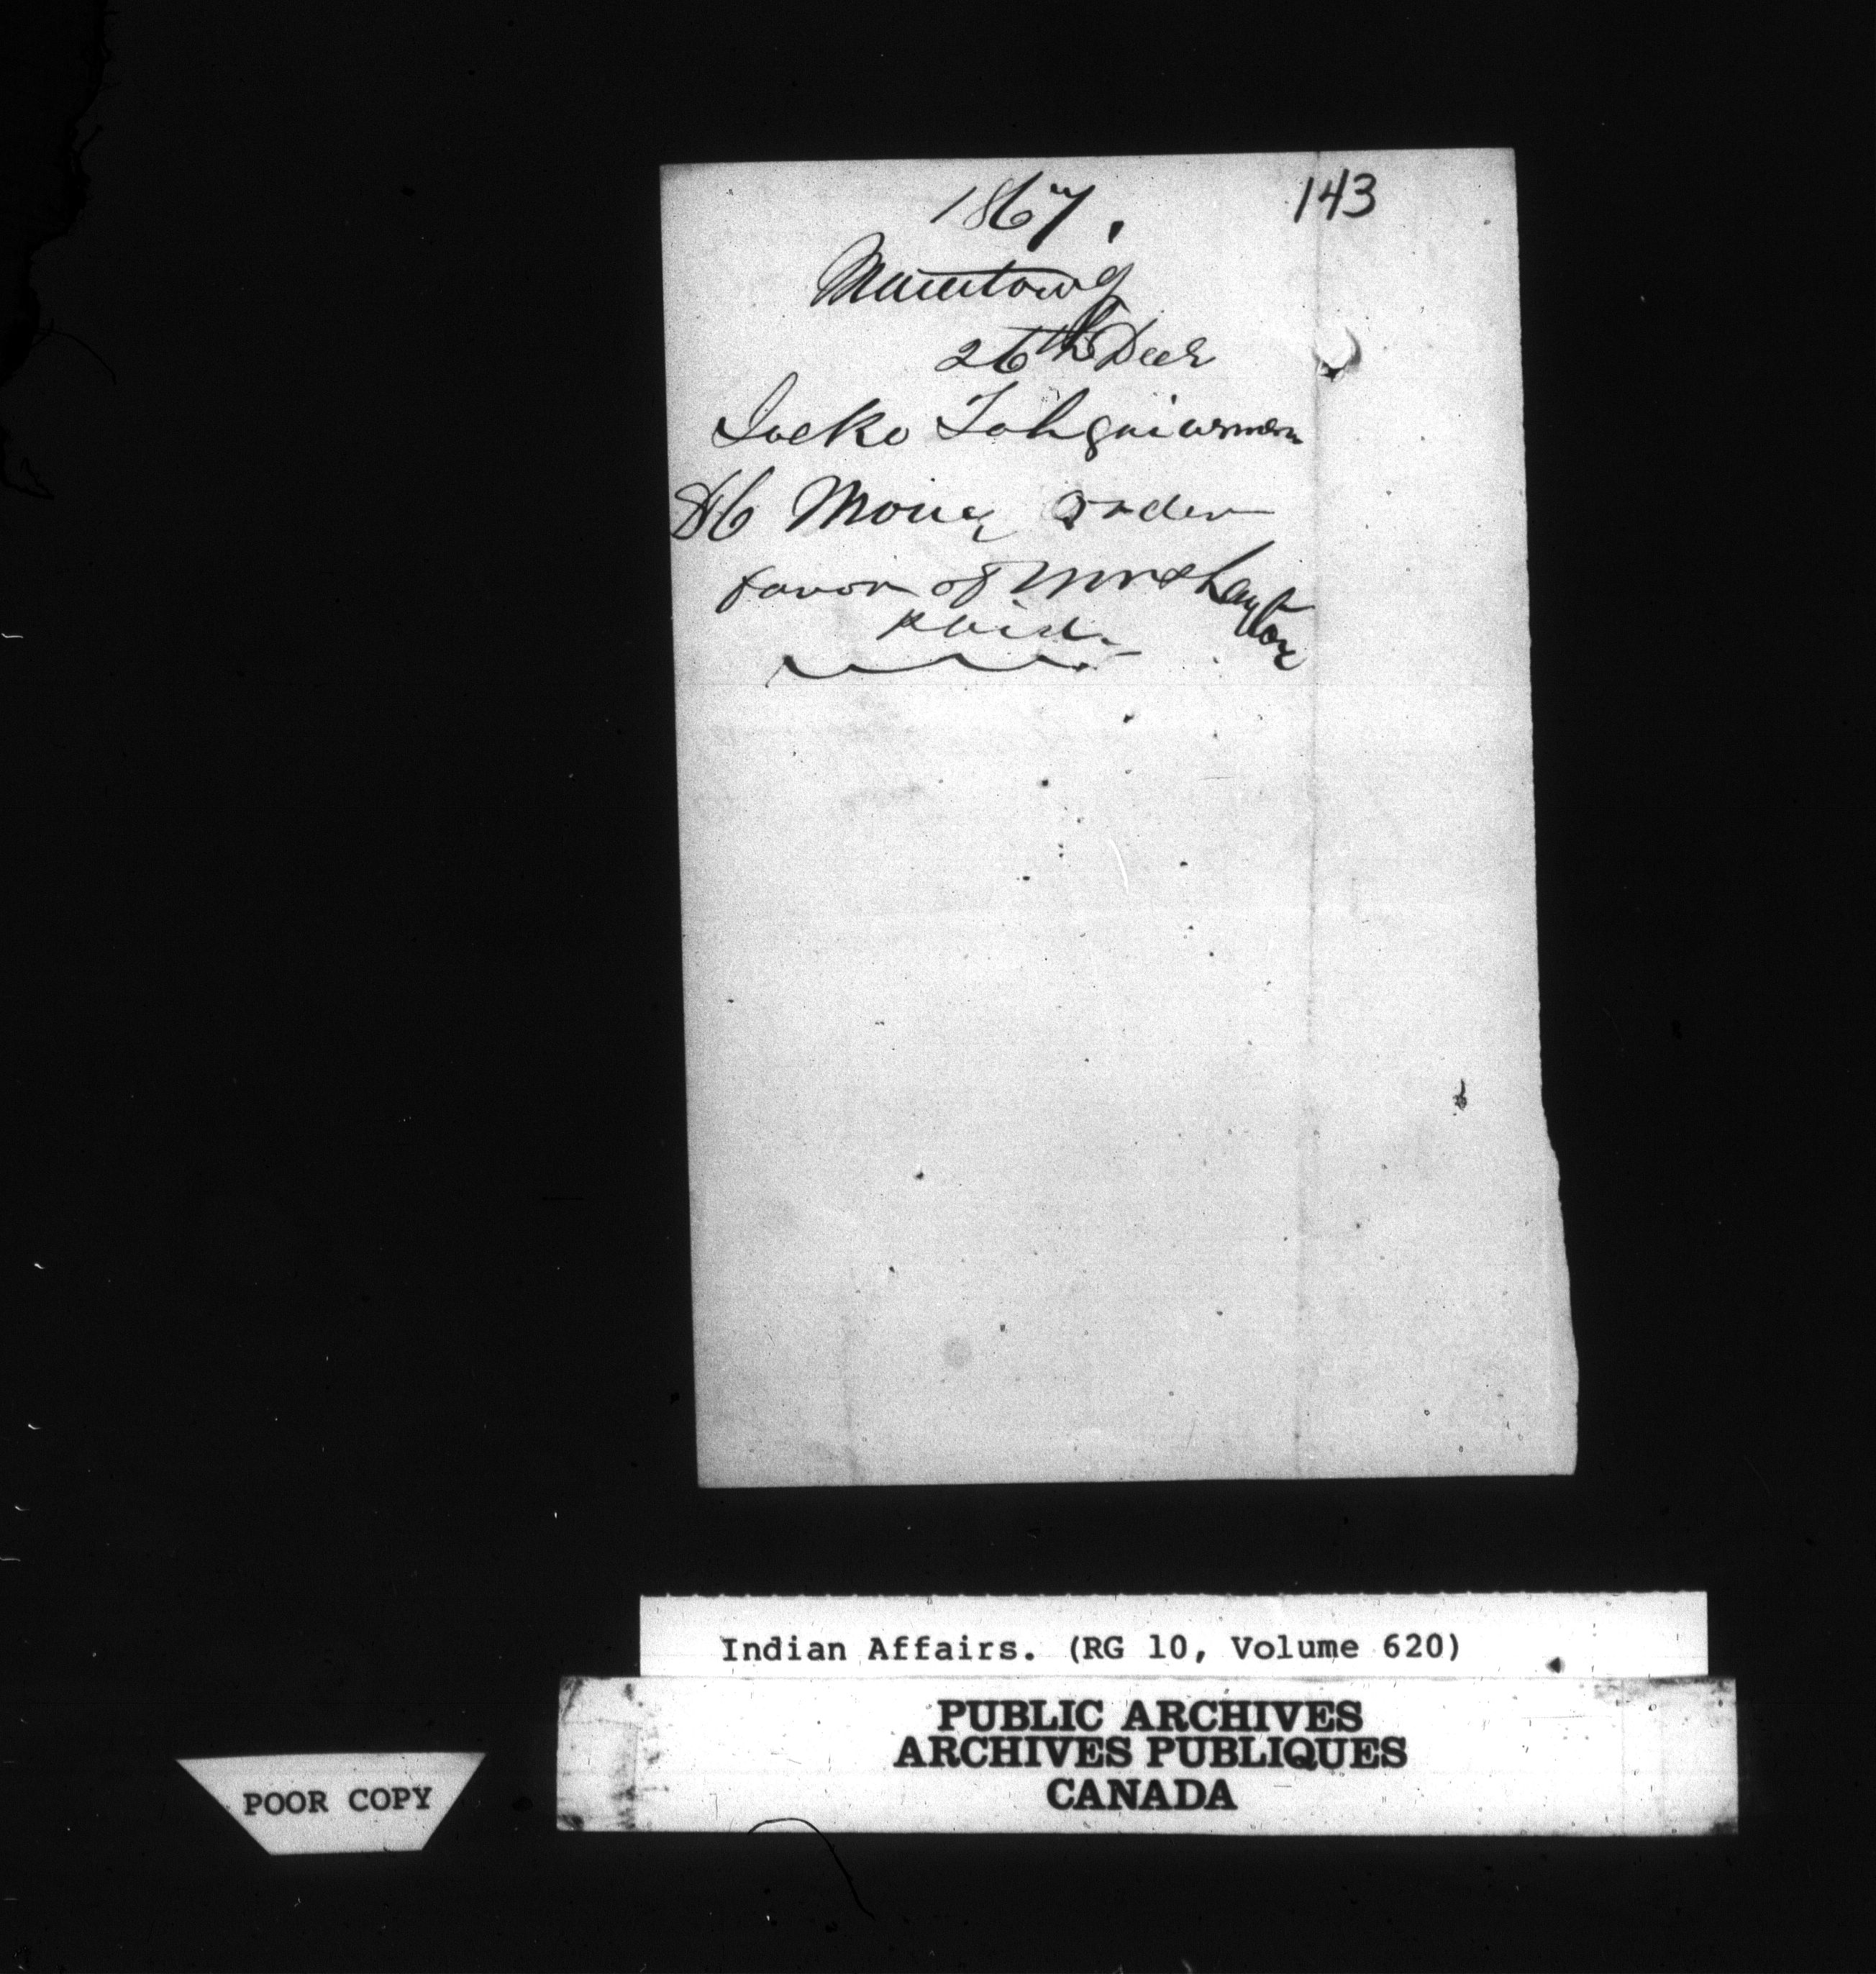 1867. 143
Manitowg
26th Decr
Jocko
$6 Money order
favor of Mrs Layton
paid.
Indian Affairs. (RG 10, Volume 620)
PUBLIC ARCHIVES
ARCHIVES PUBLIQUES
CANADA
POOR COPY